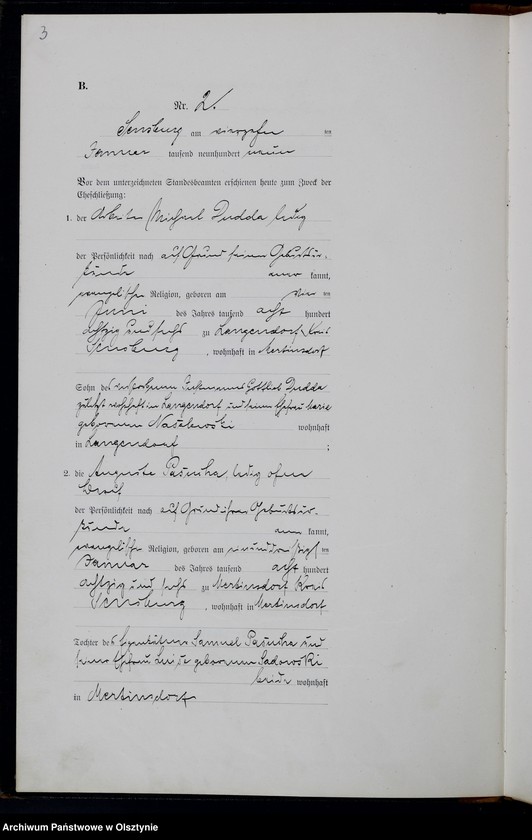 3
B.
Nr. 2.
Sensburg am vierzehn ten
Januar tausend neunhundert neun
Vor dem unterzeichneten Standesbeamten erschienen heute zum Zweck der
Eheschließung:
1. der Arbeiter Michael Dudda ledig
der Persönlichkeit nach auf Grund seiner Geburtsur-
kunde aner kannt,
evangelischer Religion, geboren am vier ten
Juni des Jahres tausend acht hundert
achtzig und sechs zu Langendorf, Kreis
Sensburg, wohnhaft in Mertinsdorf
Sohn des verstorbenen Gottlieb Dudda
zuletzt wohnhaft in Langendorf und seiner Ehefrau Marie
geborenen wohnhaft
in Langendorf ;
2. die Auguste Pasucha, ledig ohne
Beruf
der Persönlichkeit nach auf Grund ihrer Geburtsur-
kunde aner kannt,
evangelischer Religion, geboren am einunddreißigsten
Januar des Jahres tausend acht hundert
achtzig und sechs zu Mertinsdorf Kreis
Sensburg, wohnhaft in Mertinsdorf
Tochter des Eigenkätners Samuel Pasucha und
seiner Ehefrau Luise geborenen Sadowski
beide wohnhaft
in Mertinsdorf
Archiwum Państwowe w Olsztynie